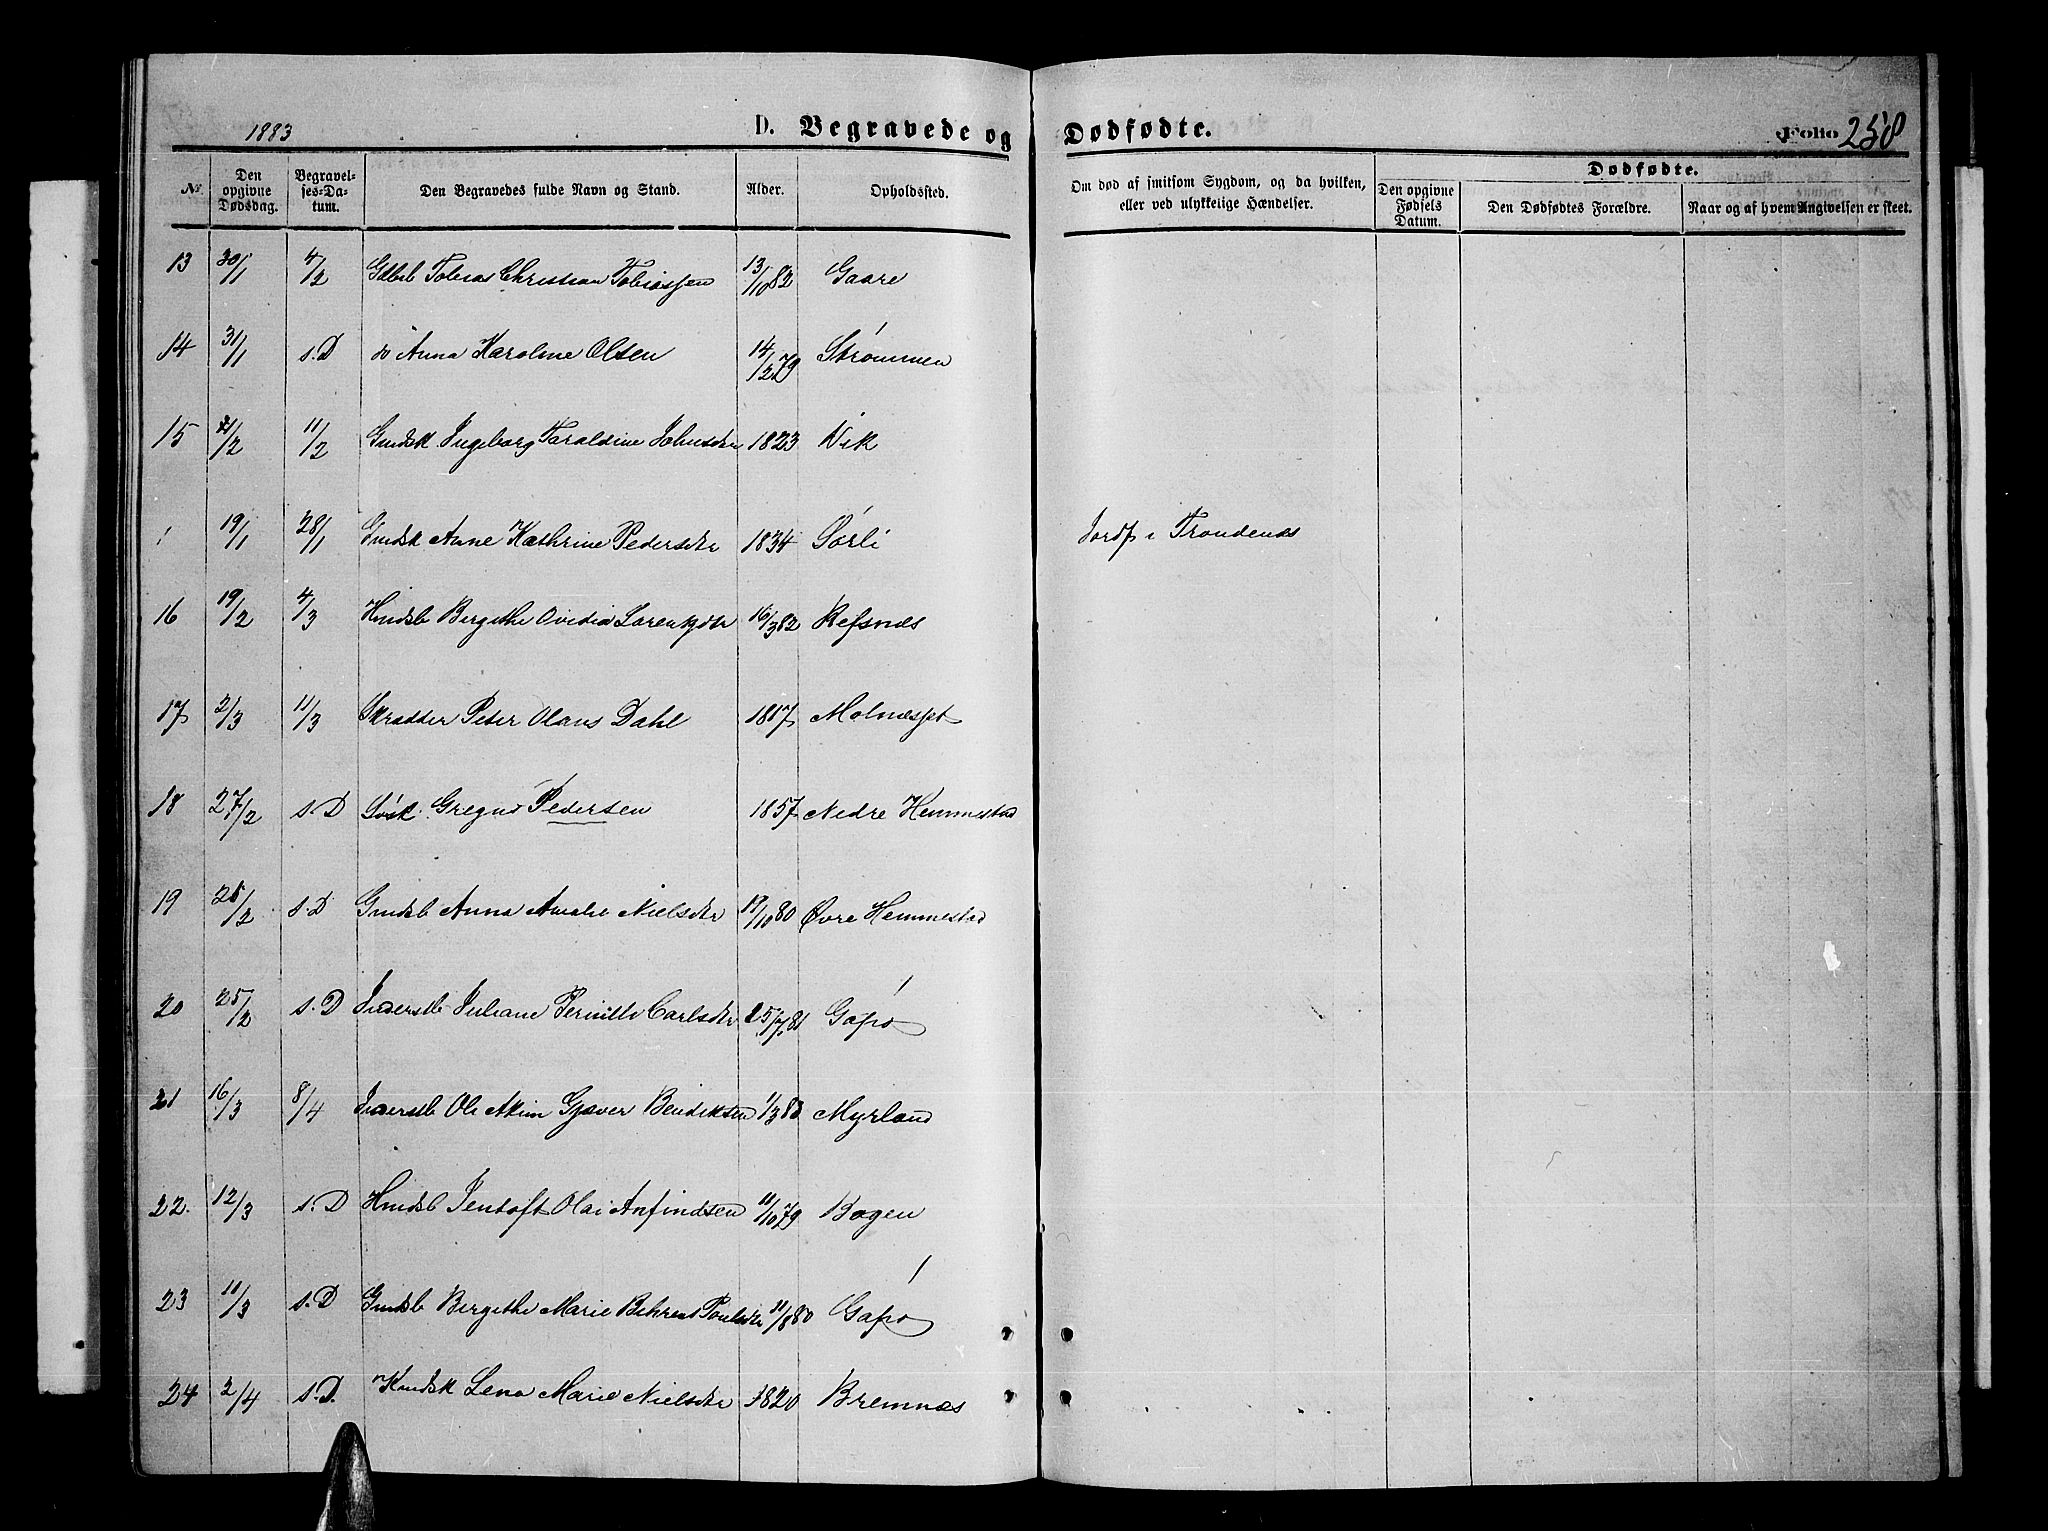 1883 D. Begravede og Dødfødte. Folio 258
No. Den opgivne Dødsdag. Begravelses-Datum. Den Begravedes fulde Navn og Stand. Alder. Opholdssted. Om død af smitsom Sygdom, og da hvilken, eller ved ulykkelige Hændelser. Dødfødte. Den opgivne Fødsels Datum. Den Dødfødtes Forældre. Naar og af hvem Angivelsen er skeet.
13 30/1 4/2 Tobias Christian Tobiassen 13/10 82 Gaare
14 31/1 s.D do Anna Karoline Olsen 14/2 79 Strømmen
15 /2 11/2 Gmdsk Ingeborg Taraldsine Johnsdtr 1823 Vik
19/1 28/1 Gmdsk Anne Kathrine Pedersdtr 1834 Sørli Jordf i Trondenæs
16 19/2 4/3 Hmdsb Bergithe Ovidia Lorentzdtr 16/3 82 Refsnæs
17 2/3 11/3 Skrædder Peter Olaus Dahl 1817 Molnesset
18 27/2 s.D Løsk. Gregus Pedersen 1857 Nedre Hemmestad
19 /2 s.D Gmdsb Anna Amalie Nielsdtr /10 80 Øvre Hemmestad
20 25/2 s.D Inderstb Juliane Pernille Carlsdtr 25/7 81 Gapø
21 16/3 8/4 Inderstb Ole Akim Gjæver Bendiksen 1/3 83 Myrland
22. 12/3 s.D Hmdsb Jentoft Olai Anfindsen 11/10 79 Bogen
23 11/3 s.D Gmdsb Bergithe Marie Behrens Poulsdtr 11/8 80 Gapø
24 2/4 s.D. Kmdsk Lena Marie Nielsdtr 1820 Bremnæs